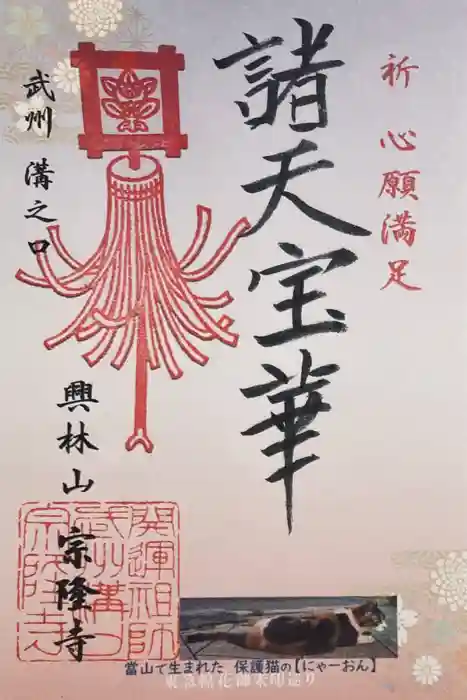 祈 心願満足
諸天宝華
武州 溝之口
興林山 宗隆寺
開運祖師
武州溝口
宗隆寺
當山で生まれた 保護猫の【にゃーおん】
東急線花御朱印巡り